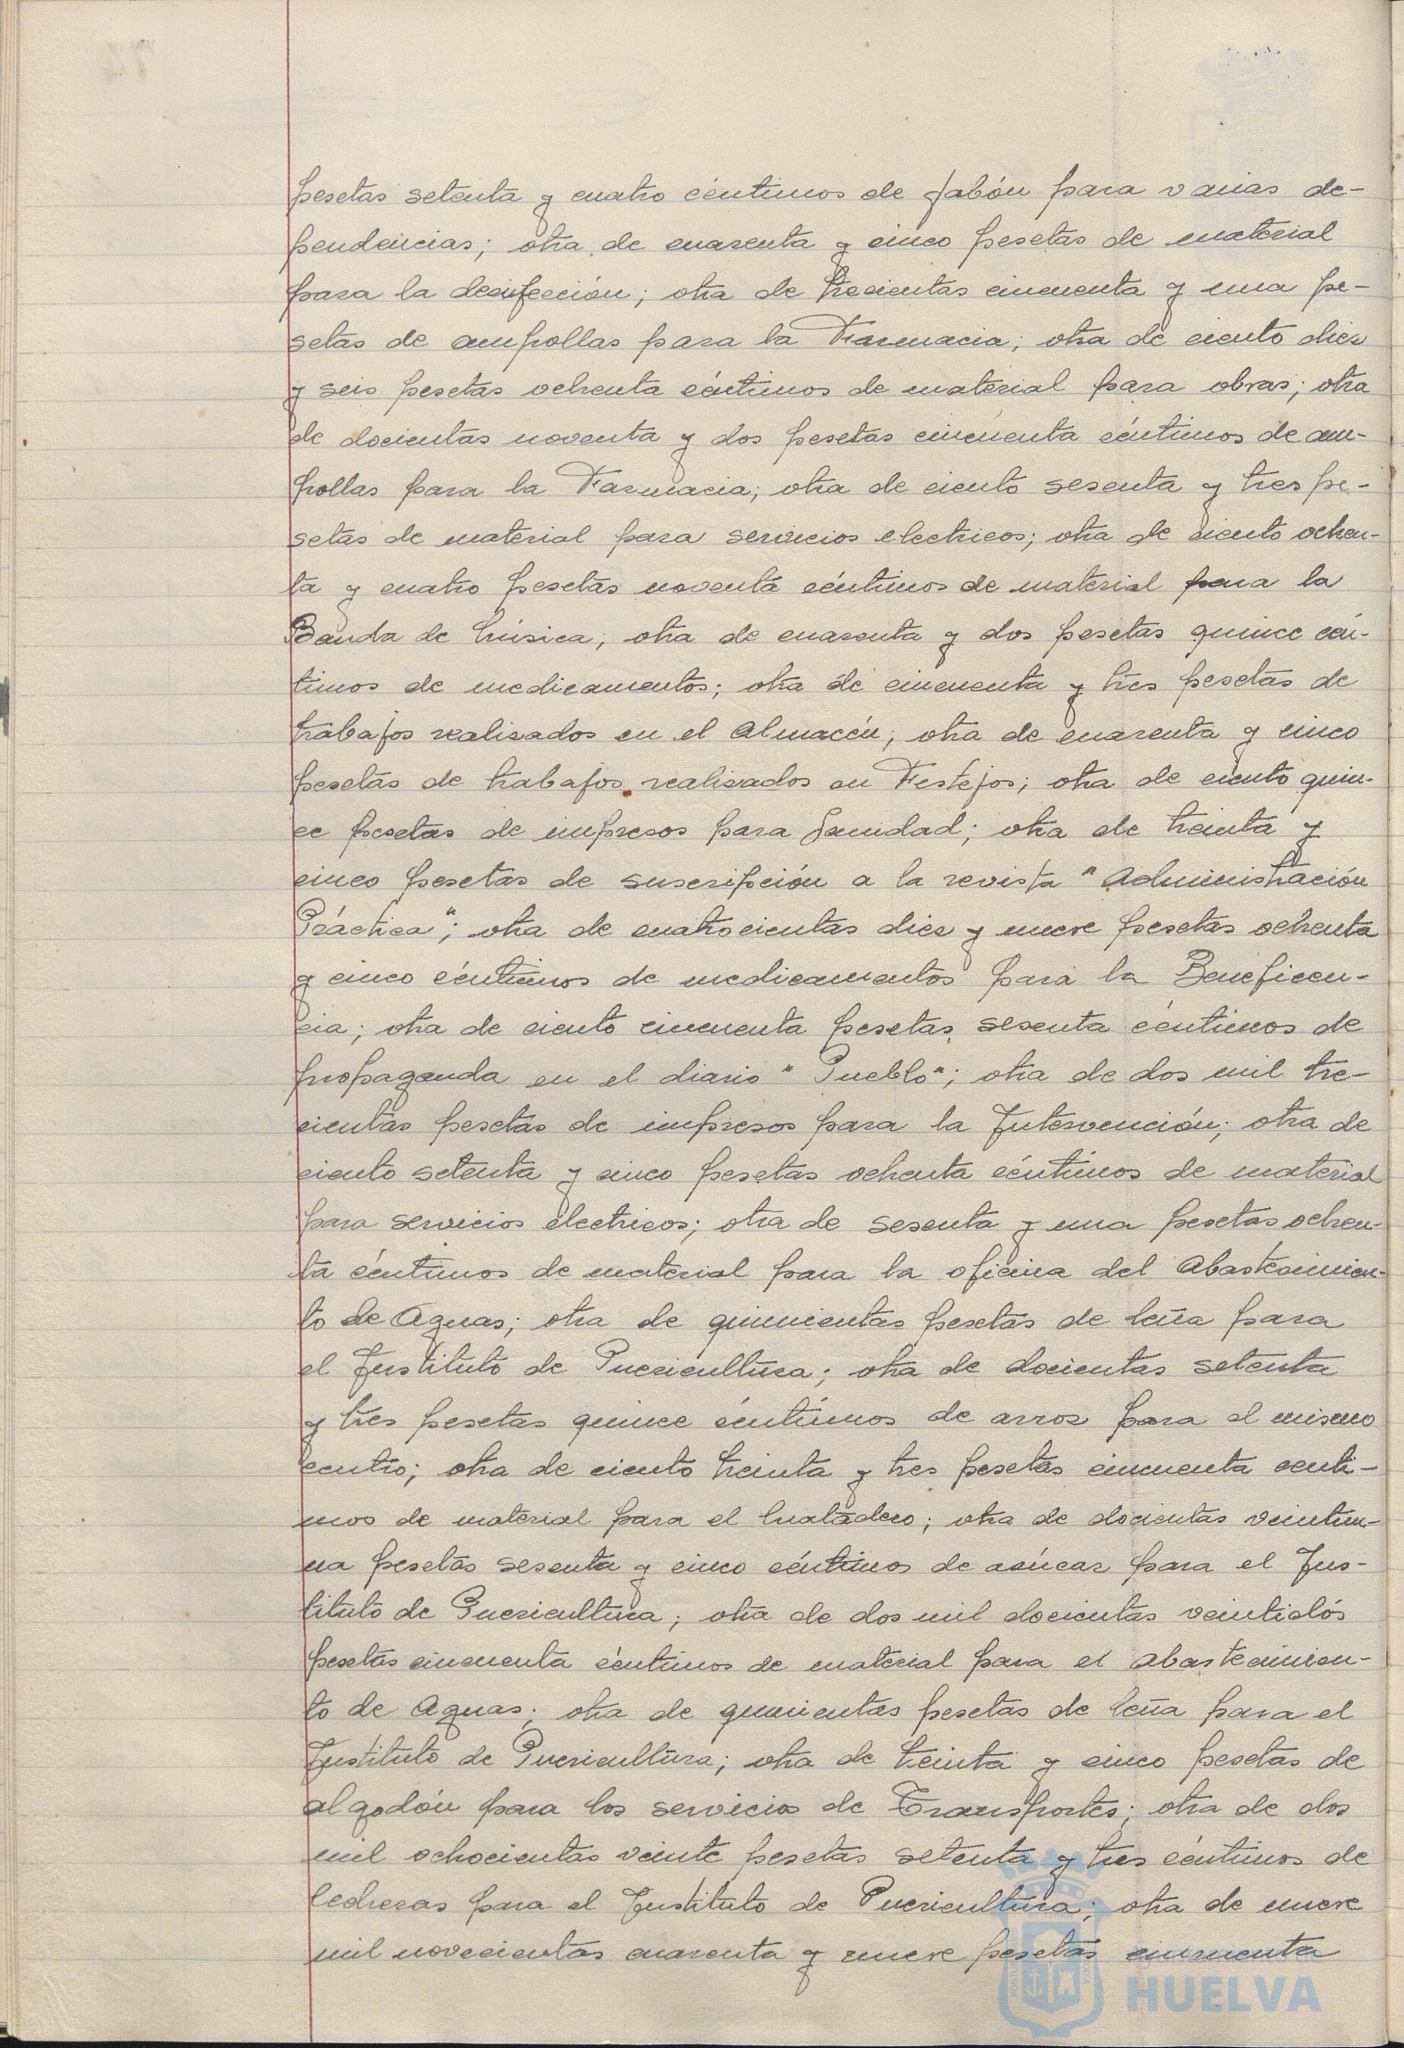 pesetas setenta y cuatro céntimos de jabón para varias de-
pendencias; otra de cuarenta y cinco pesetas de material
para la desifección; otra de trecientas cincuenta y una pe-
setas de ampollas para la Farmacia; otra de ciento diez
y seis pesetas ochenta céntimos de material para obras; otra
de docientas noventa y dos pesetas cincuenta céntimos de am-
pollas para la Farmacia; otra de ciento sesenta y tres pe-
setas de material para servicios electricos; otra de ciento ochen-
ta y cuatro pesetas noventa céntimos de material para la
Banda de Música; otra de cuarenta y dos pesetas quince cén-
timos de medicamentos; otra de cincuenta y tres pesetas de
trabajos realisados en el Almacén; otra de cuarenta y cinco
pesetas de trabajos realisados en Festejos; otra de ciento quin-
ce pesetas de impresos para Sanidad; otra de treinta y
cinco pesetas de suscripción a la revista "Administración
Práctica"; otra de cuatrocientas diez y nueve pesetas ochenta
y cinco céntimos de medicamentos para la Beneficen-
cia; otra de ciento cincuenta pesetas sesenta céntimos de
propaganda en el diario "Pueblo"; otra de dos mil tre-
cientas pesetas de impresos para la Intervención; otra de
ciento setenta y cinco pesetas ochenta céntimos de material
para servicios electricos; otra de sesenta y una pesetas ochen-
ta céntimos de material para la oficina del Abastecimien-
to de Aguas; otra de quinientas pesetas de leña para
el Instituto de Puericultura; otra de docientas setenta
y tres pesetas quince céntimos de arroz para el mismo
centro; otra de ciento treinta y tres pesetas cincuenta centi-
mos de material para el Matadero; otra de docientas veintiu-
na pesetas sesenta y cinco céntimos de azúcar para el Ins-
tituto de Puericultura; otra de dos mil docientas veintidós
pesetas cincuenta céntimos de material para el Abastecimien-
to de Aguas; otra de quinientas pesetas de leña para el
Instituto de Puericultura; otra de treinta y cinco pesetas de
algodón para los servicios de Transportes; otra de dos
mil ochocientas veinte pesetas setenta y tres céntimos de
lecheras para el Instituto de Puericultura; otra de nueve
mil novecientas cuarenta y nueve pesetas cincuenta
HUELVA